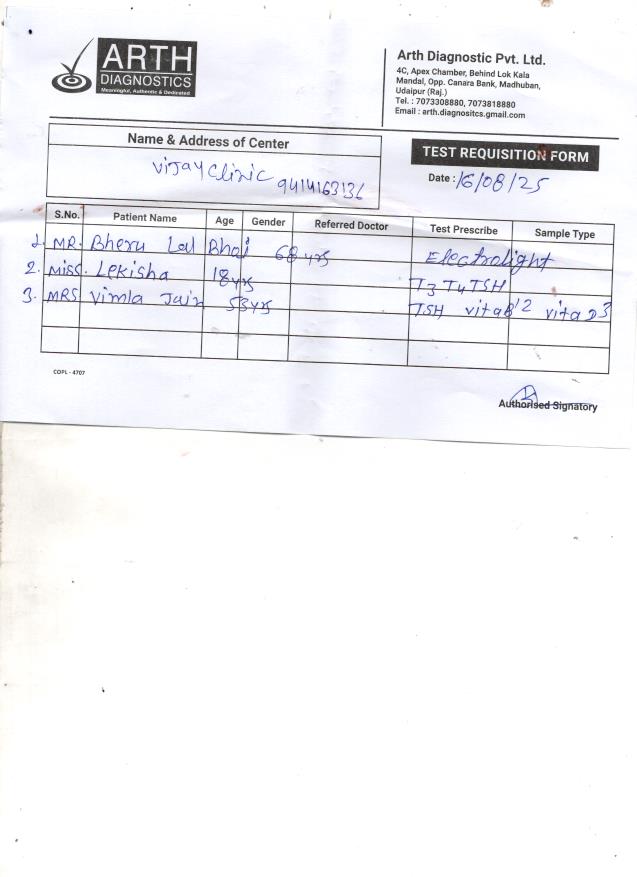 ARTH
DIAGNOSTICS
Meaningful, Authentic & Dedicated
Arth Diagnostic Pvt. Ltd.
4C, Apex Chamber, Behind Lok Kala
Mandal, Opp. Canara Bank, Madhuban,
Udaipur (Raj.)
Tel. : 7073308880, 7073818880
Email : arth.diagnositcs.gmail.com
Name & Address of Center
Vijay Clinic 9414163136
TEST REQUISITION FORM
Date : 16/08/25
S.No. Patient Name Age Gender Referred Doctor Test Prescribe Sample Type
1. MR. Bheru Lal Bhoi 68 yrs Electrolight
2. Miss. Lekisha 18yrs T3 T4 TSH
3. MRS Vimla Jain 53yrs TSH vita B12 vita D3
COPL - 4707
Authorised Signatory